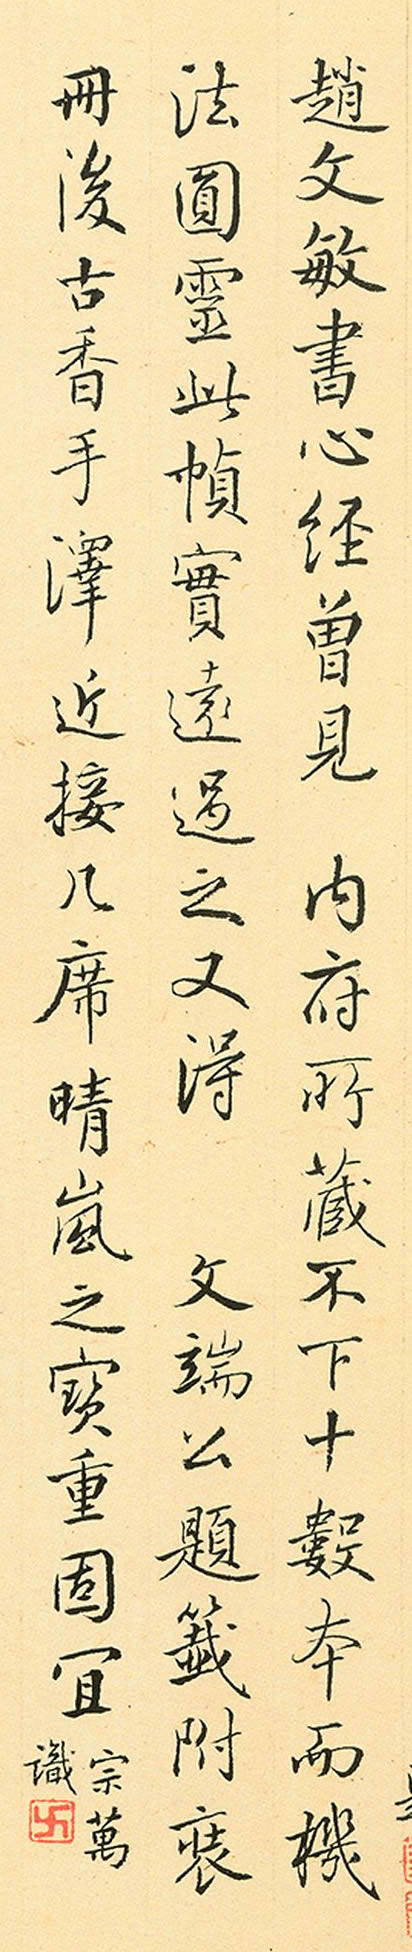 趙文敏書心經曾見　内府所藏不下十數本而機
法圓靈此幀實遠過之又得　文端公題籤附裝
冊後古香手澤近接几席晴嵐之寶重固宜
宗萬
識
卍